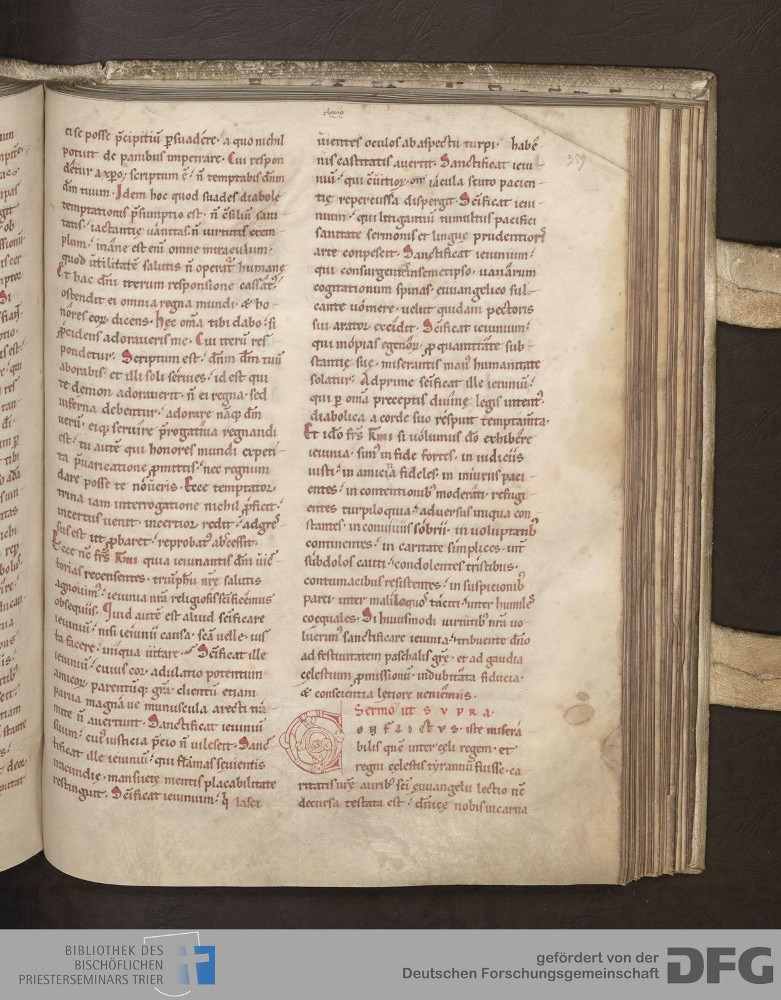 ei se posse p̄cipitiū p̱suadere. a quo nichil
potuit de panibus impetrare. Cui respon
detur a xp̄o; scriptum ē. n̄ temptabis dn̄m
dm̄ tuum. Idem hoc quod suades diabole
temptationis p̄sumptio est. n̄ c̄siliū sani
tatis. iactantię uanitas n̄ uirtutis exem
plum. inane est eni omne miraculum.
quod utilitatē salutis n̄ operat᷒ humanę
Et hac dn̄i iterum responsione cassat᷒.
ostendit ei omnia regna mundi. & ho
nores eoꝝ dicens. hęc om̄a tibi dabo. si
p̄cidens adoraueris me. Cui iterū res
pondetur. Scriptum est. dn̄m dm̄ tuū
adorabis. et illi soli seruies. id est qui
te demon adorauerit. n̄ ei regna. sed
inferna debentur. adorare naq; dm̄
uerū. eiq; seruire p̄rogatiua regnandi
est. tu autē qui honores mundi expeti
ta p̄uaricatione ꝓmittis. nec regnum
dare posse te noueris. Ecce temptator.
trina iam interrogatione nichil ꝓficit.
incertus uenit. incertior redit. adgres
sus est ut ꝓbaret. reprobat᷒ abscessit.
Ecce nc̄ frs̄ km̄i quia ieiunantis dn̄i uic
torias recensentes. triūphū nr̄e salutis
agnouim᷒. ieiunia nr̄a religiosis sc̄ificemus
obsequiis. Quid autē est aliud sc̄ificare
ieiuniū. nisi ieiunii causa sc̄a uelle. ius
ta facere. iniqua uitare. Sc̄ificat ille
ieiuniū. cuius cor adulatio potentum
amicoꝝ parentūq; gr̄a. clientū etiam
parua magna ue munuscula a recti tra
mite n̄ auertunt. Sanctificat ieiuniū
suum. cui᷒ iusticia p̄cio n̄ uilescit. Sanc
tificat ille ieiuniū. qui flāmas sęuientis
iracundię. mansuetę mentis placabilitate
restinguit. Sc̄ificat ieiunium. q̇ lasci
uientes oculos ab aspectu turpi. habe
nis castitatis auertit. Sanctificat ieiu
niū. qui
tię repercussa dispergit. Sc̄ificat ieiu
nium. qui litigantiū tumultus pacifici
sanitate sermonis et linguę prudentioris
arte conpescit. Sanctificat ieiunium.
qui consurgentē in semetipso. uanarum
cogitationum spinas. euuangelico sul
cante uomere. uelut quidam pectoris
sui arator excidit. Sc̄ificat ieiunium.
qui inopias egenoꝝ. ꝓ quantitate sub
stantię suę. miserantis man᷒ humanitate
solatur. Ad prime sc̄ificat ille ieiuniū.
qui p̱ om̄a precepti diuinę legis intent᷒.
diabolica a corde suo respuit temptam̄ta.
Et ido frs̄ km̄i si uolumus do exhibere
ieiunia. sim᷒ in fide fortes. in iudiciis
iusti. in amicitia fideles. in iniuriis paci
entes. in contentionib᷒ moderati. refugi
entes turpiloquia. aduersus iniqua con
stantes. in conuiuiis sobrii. in uoluptatib᷒
continentes. in caritate simplices. int̄
subdolos cauti. condolentes tristibus.
contumacibus resistentes. in suspicionib᷒
parci. inter maliloquos taciti. inter humiles
coequales. Si huiusmodi uirtutib᷒ nr̄a uo
luerim᷒ sanctificare ieiunia. tribuente dn̄o
ad festiuitatem paschalis gr̄e. et ad gaudia
cęlestium ꝓmissionū. indubitata fiducia.
& conscientia letiore ueniemus.
Sermo ut SVPRA.
CONFLICTVS iste miserā
bilis quē inter cęli regem. et
regni cęlestis tyrannū fuisse. ca
ritatis ur̄ę aurib᷒ sc̄i euuangelii lectio nc̄
decursa testata est. dn̄icę nobis incarna
359
BIBLIOTHEK DES
BISCHÖFLICHEN
PRIESTERSEMINARS TRIER
gefördert von der
Deutschen Forschungsgemeinschaft
DFG